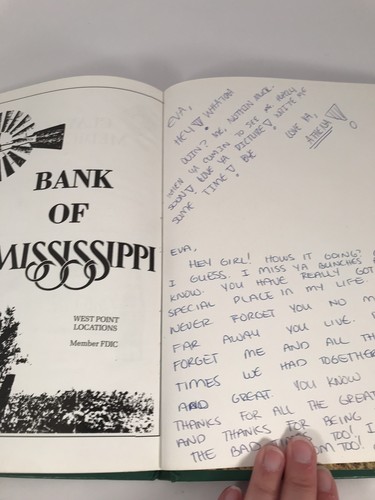 BANK
OF
MISSISSIPPI
WEST POINT
LOCATIONS
Member FDIC
EVA,
HEY! WHATCHA
DOIN? ME, NOTHIN MUCH.
WHEN YA COMIN TO SEE
SOON! LOVE YA PICTURE! WRITE ME
SOME TIME! BYE
LOVE YA,
ATHENA
EVA,
HEY GIRL! HOWS IT GOING?
I GUESS. I MISS YA BUNCHES
KNOW. YOU HAVE REALLY GOT
SPECIAL PLACE IN MY LIFE.
NEVER FORGET YOU NO
FAR AWAY YOU LIVE.
FORGET ME AND ALL TH
TIMES WE HAD TOGETHER
AND GREAT. YOU KNOW
THANKS FOR ALL THE GREAT
AND THANKS FOR BEING
THE BAD TIMES TOO! I
TOO!